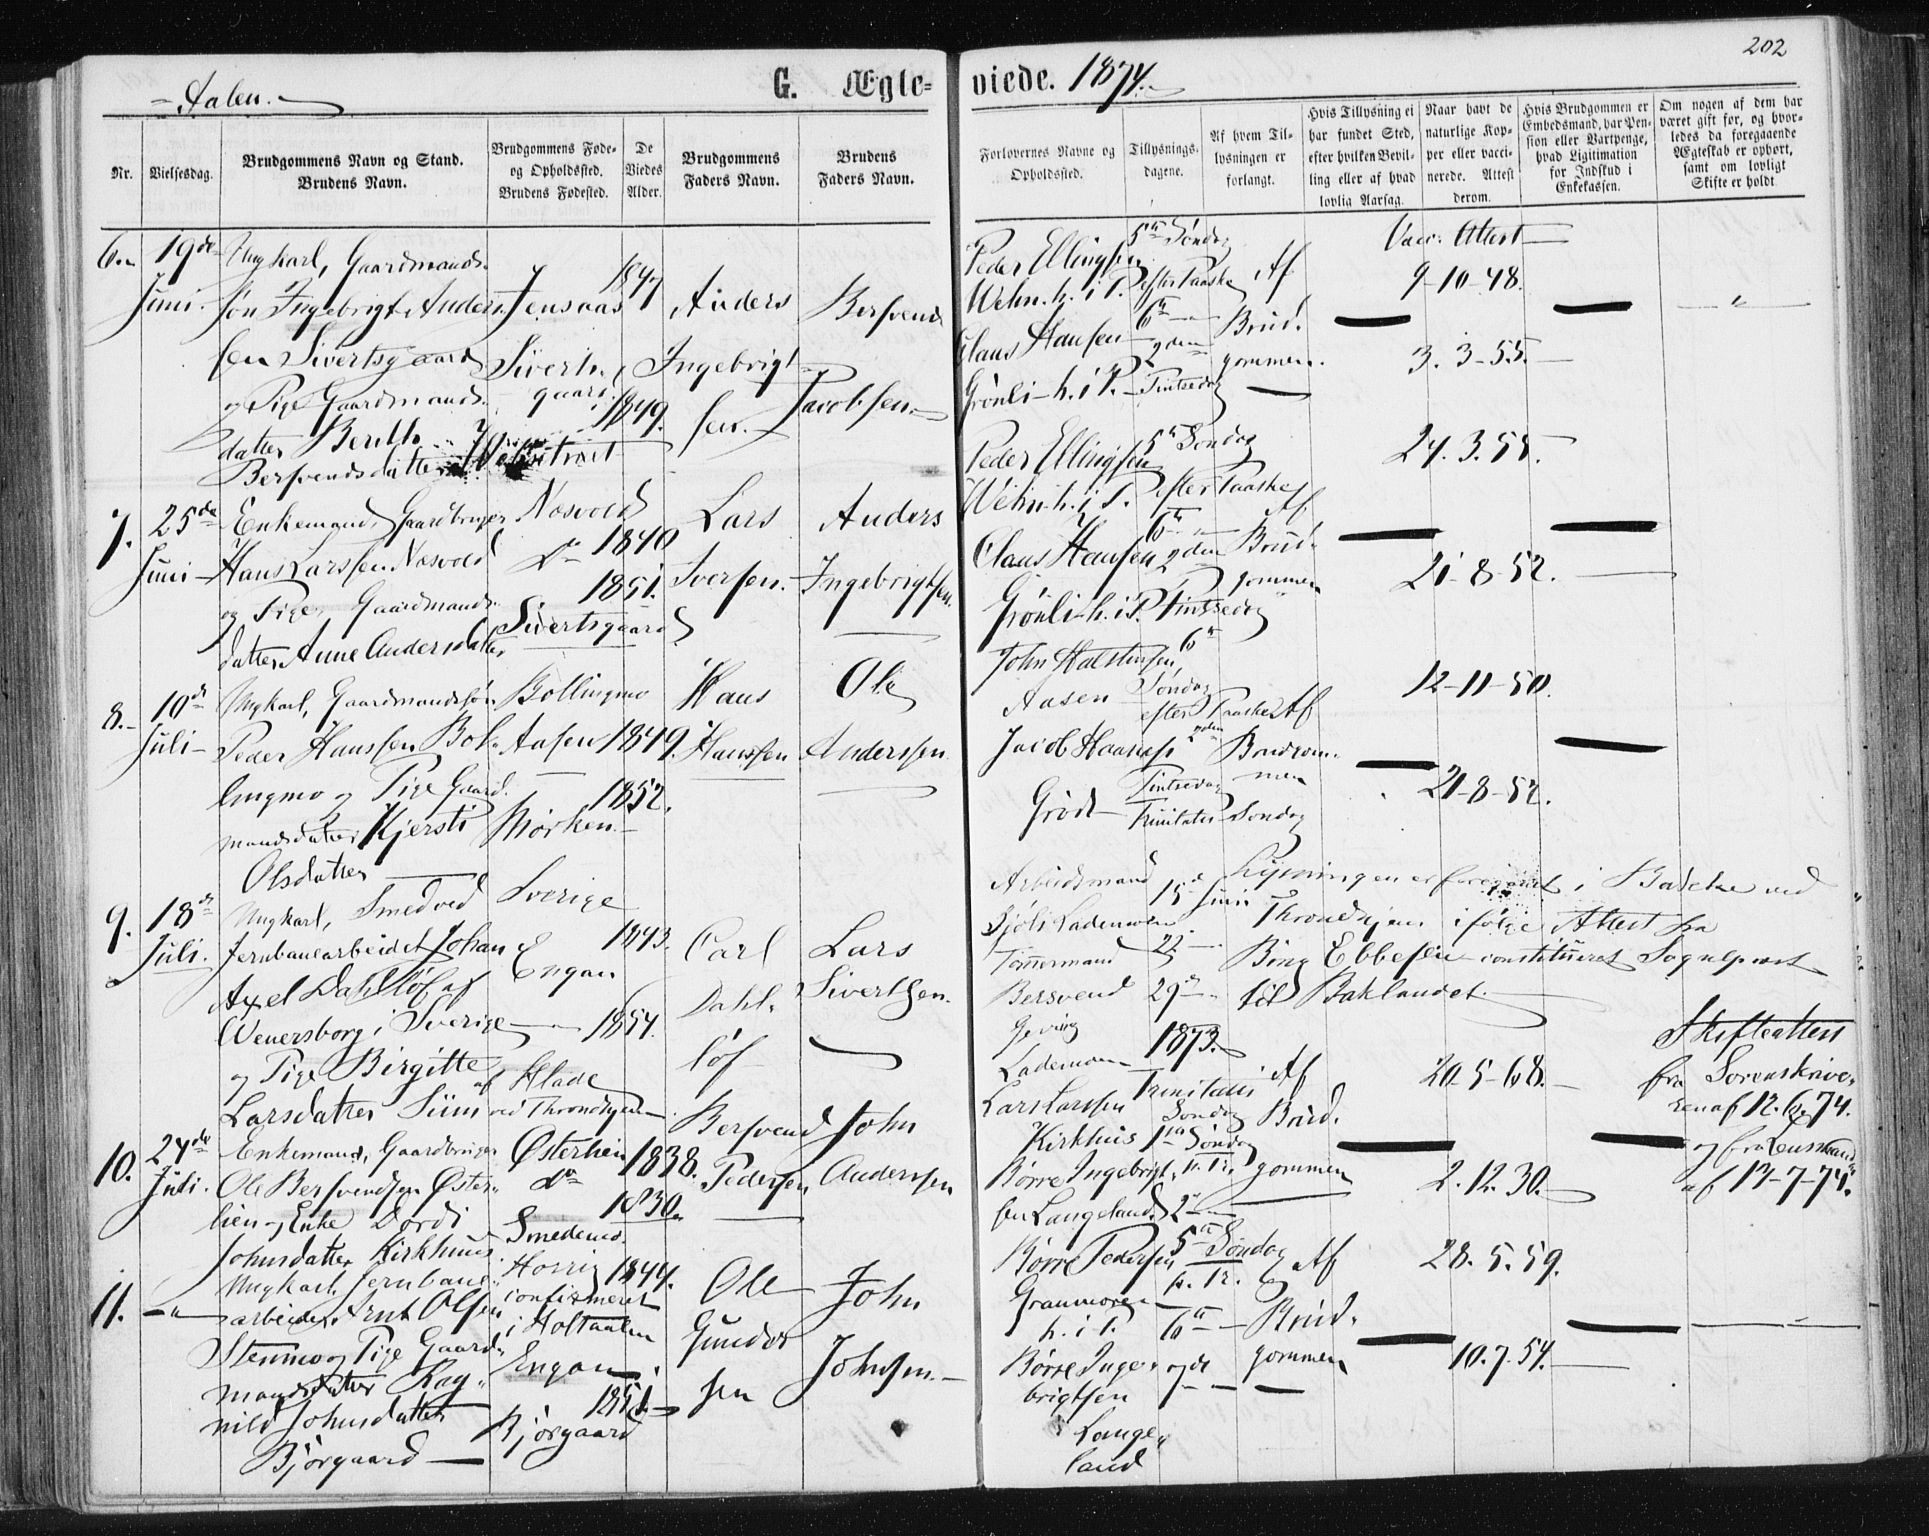 202
Aalen.
G. Ægte=
viede. 1874.
Nr.
Vielsesdag.
Brudgommens Navn og Stand.
Brudens Navn.
Brudgommens Føde-
og Opholdssted.
Brudens Fødested.
De
Viedes
Alder.
Brudgommens
Faders Navn.
Brudens
Faders Navn.
Forlovernes Navne og
Opholdssted.
Tillysnings-
dagene.
Af hvem Til-
lysningen er
forlangt.
Hvis Tillysning ei
har fundet Sted,
efter hvilken Bevil-
ling eller af hvad
lovlig Aarsag.
Naar havt de
naturlige Kop-
per eller vacci-
nerede. Attest
derom.
Hvis Brudgommen er
Embedsmand, har Pen-
sion eller Vartpenge,
hvad Ligitimation
for Indskud i
Enkekassen.
Om nogen af dem har
været gift før, og hvor-
ledes da foregaaende
Ægteskab er ophørt,
samt om lovligt
Skifte er holdt
6.
19de
Juni.
Ungkarl, Gaardmands-
søn Ingebrigt Anders-
sen Sivertsgaard
og Pige Gaardmands-
datter Berith
Bersvendsdatter
Jensaas
1847
Siverts-
gaard
1849.
Anders
Ingebrigt-
sen.
Bersvend
Jacobsen.
Peder Ellingsen
Wehn. h. i P.
Claus Hansen
Grønli h. i P.
5te Søndag
efter Paaske
6te
2den
Pintsedag
Af
Brud-
gommen.
Vacc. Attest
9-10-48.
3. 3-55.
7.
25de
Juni
Enkemand, Gaardbruger
Hans Larssen Nosvold
og Pige, Gaardmands-
datter Anne Andersdatter
Nosvold
do 1840
1851.
Sivertsgaard
Lars
Iversen.
Anders
Ingebrigtsen.
Peder Ellingsen
Wehn. h. i P.
Claus Hansen
Grønli h. i P.
5te Søndag
efter Paaske
6te
2den
Pintsedag
Af
Brud-
gommen
24. 3. 55.
21-8-52.
8.
10de
Juli
Ungkarl, Gaardmandssøn
Peder Hanssen Bol-
lingmo og Pige Gaard-
mandsdatter Kjersti
Olsdatter
Bollingmo
Aasen 1849.
1852.
Mørken
Hans
Hanssen
Ole
Anderssen
John Halstensen
Aasen
Grødt
6te
Søndag
efter Paaske
2den
Pintsedag
Trinitatis Søndag
Af
Brudgom-
men
12-11-50.
21-8-52.
9.
18de
Juli.
Ungkarl, Smed ved
Jernbanearbeidet Johan
Axel Dahlløf af
Wenersborg i Sverige
og Pige Birgitte
Larsdatter
Sverige
Engan
1843.
1854.
af Hlade
ved Throndhjem
Carl
Dahl-
løf
Lars
Sivertsen.
Arbeidsmand
Tømmermand
Bersvend
Geving
Lademoen
15de Juni
22
29de
1873.
Lysningen er foregaaet i Bakke ved
Throndhjem ifølge Attest fra
Bing Ebbesen constitueret Sognepræst
til Baklandet.
10.
24de
Juli.
Enkemand, Gaardbruger
Ole Bersvendsen Øster-
lien og Enke Dordi
Johnsdatter Kirkhus
Østerlien 1838.
do
1830.
Smedemo.
Bersvend
Pedersen
John
Anderssen
Lars Larssen
Kirkhus
Børre Ingebrigt-
sen Langeland
Trinitatis
Søndag
1ste Søndag
e. Tr.
2
Af
Brud-
gommen
20-5-68.
2. 12. 30.
Skifteattest
fra Sorenskrive-
ren af 12. 6. 74.
og fra Lensmand
af 13-7-74.
11.
Ungkarl Jernbane-
arbeider Arnt Olsen
Stenmo og Pige Gaard-
mandsdatter Rag-
nild Johnsdatter
Bjørgaard
1844.
confirmeret
i Holtaalen
Engan
1851.
Bjørgaard
Ole
Gunder
sen
John
Johnsen
Børre Pedersen
Granmoren
h. i P.
Børre Inge-
brigtsen
Lange-
land
5te Søndag
p. Tr.
6te
7de
Af
Brud-
gommen
28. 5. 59.
10. 7. 54.